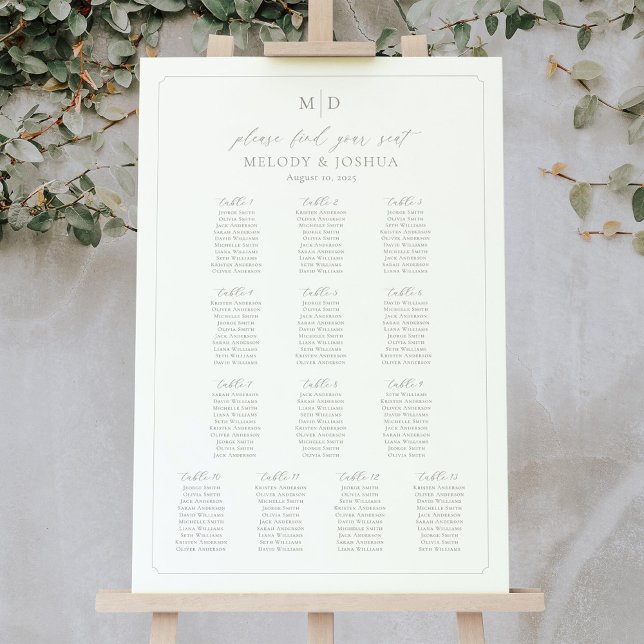 M | D
please find your seat
MELODY & JOSHUA
August 10, 2025
table 1
Jeorge Smith
Olivia Smith
Jack Anderson
Sarah Anderson
David Williams
Michelle Smith
Liana Williams
Seth Williams
Kristen Anderson
Oliver Anderson
table 2
Kristen Anderson
Oliver Anderson
Michelle Smith
Jeorge Smith
Olivia Smith
Jack Anderson
Sarah Anderson
Liana Williams
Seth Williams
David Williams
table 3
Jeorge Smith
Olivia Smith
Seth Williams
David Williams
Michelle Smith
Kristen Anderson
Oliver Anderson
Jack Anderson
Sarah Anderson
Liana Williams
table 4
Kristen Anderson
Oliver Anderson
Michelle Smith
Jeorge Smith
Olivia Smith
Jack Anderson
Sarah Anderson
Liana Williams
Seth Williams
David Williams
table 5
Jeorge Smith
Olivia Smith
Jack Anderson
Sarah Anderson
David Williams
Michelle Smith
Liana Williams
Seth Williams
Kristen Anderson
Oliver Anderson
table 6
David Williams
Michelle Smith
Jack Anderson
Sarah Anderson
Liana Williams
Jeorge Smith
Olivia Smith
Seth Williams
Kristen Anderson
Oliver Anderson
table 7
Sarah Anderson
David Williams
Michelle Smith
Liana Williams
Seth Williams
Kristen Anderson
Oliver Anderson
Jeorge Smith
Olivia Smith
Jack Anderson
table 8
Jack Anderson
Sarah Anderson
Liana Williams
Seth Williams
David Williams
Kristen Anderson
Oliver Anderson
Michelle Smith
Jeorge Smith
Olivia Smith
table 9
Seth Williams
Kristen Anderson
Oliver Anderson
David Williams
Michelle Smith
Jack Anderson
Sarah Anderson
Liana Williams
Jeorge Smith
Olivia Smith
table 10
Jeorge Smith
Olivia Smith
Jack Anderson
Sarah Anderson
David Williams
Michelle Smith
Liana Williams
Seth Williams
Kristen Anderson
Oliver Anderson
table 11
Kristen Anderson
Oliver Anderson
Michelle Smith
Jeorge Smith
Olivia Smith
Jack Anderson
Sarah Anderson
Liana Williams
Seth Williams
David Williams
table 12
Jeorge Smith
Olivia Smith
Seth Williams
Kristen Anderson
Oliver Anderson
David Williams
Michelle Smith
Jack Anderson
Sarah Anderson
Liana Williams
table 13
Kristen Anderson
Oliver Anderson
David Williams
Jack Anderson
Michelle Smith
Sarah Anderson
Liana Williams
Seth Williams
Olivia Smith
Jeorge Smith